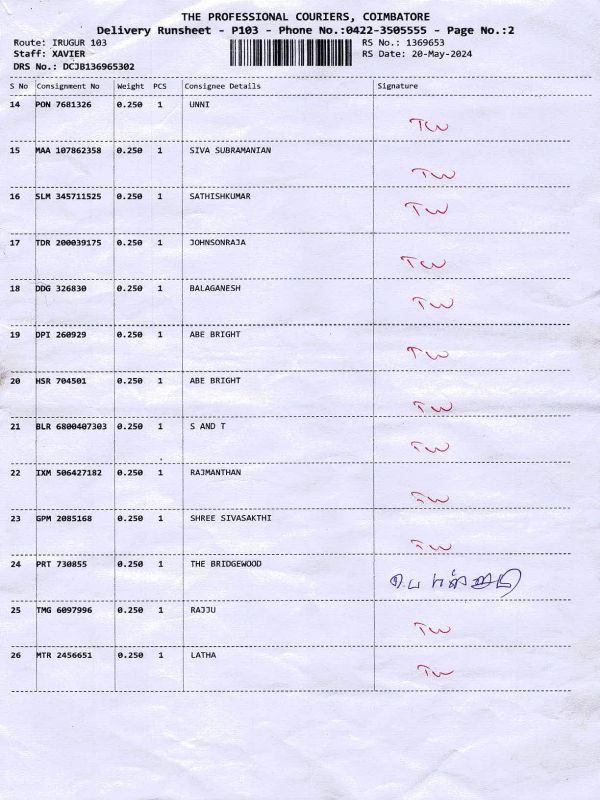 THE PROFESSIONAL COURIERS, COIMBATORE
Delivery Runsheet - P103 - Phone No.:0422-3505555 - Page No.:2
Route: IRUGUR 103 RS No.: 1369653
Staff: XAVIER RS Date: 20-May-2024
DRS No.: DCJB136965302
S No Consignment No Weight PCS Consignee Details Signature
14 PON 7681326 0.250 1 UNNI
TW
15 MAA 107862358 0.250 1 SIVA SUBRAMANIAN
TW
16 SLM 345711525 0.250 1 SATHISHKUMAR
TW
17 TDR 200039175 0.250 1 JOHNSONRAJA
TW
18 DDG 326830 0.250 1 BALAGANESH
TW
19 DPI 260929 0.250 1 ABE BRIGHT
TW
20 HSR 704501 0.250 1 ABE BRIGHT
TW
21 BLR 6800407303 0.250 1 S AND T
TW
22 IXM 506427182 0.250 1 RAJMANTHAN
TW
23 GPM 2085168 0.250 1 SHREE SIVASAKTHI
TW
24 PRT 730855 0.250 1 THE BRIDGEWOOD
25 TMG 6097996 0.250 1 RAJJU
TW
26 MTR 2456651 0.250 1 LATHA
TW